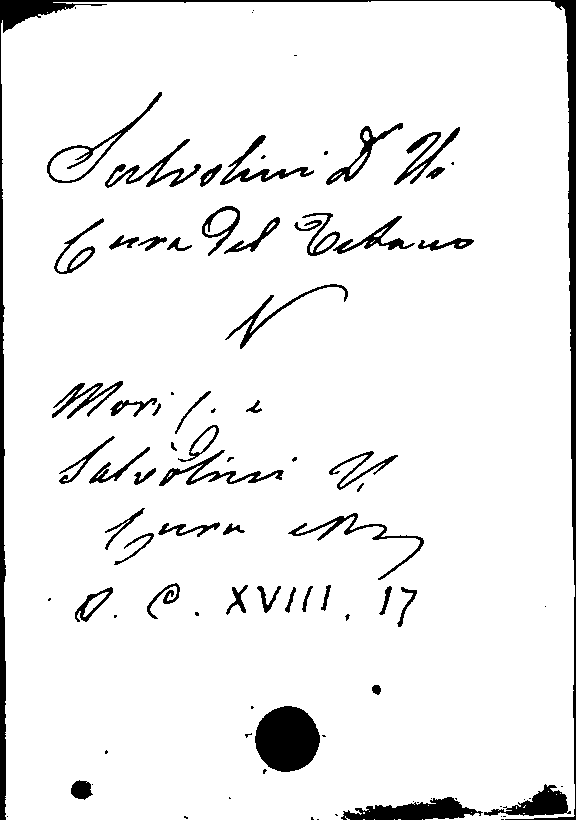 Salvolini D. Vi.
Cura del Tetano
V
Mori G. e
Salvolini V.
Cura etc
O. C. XVIII. 17